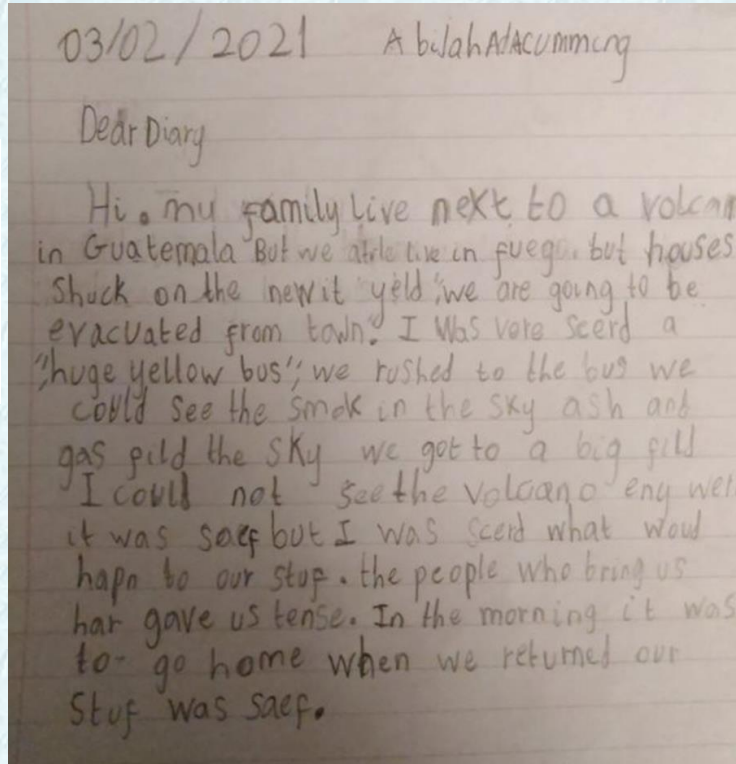 03/02/2021 Abilah
Dear Diary
Hi. my family live next to a volcan
in Guatemala But we live in fuego. but houses
Shuck on the newit yeld "we are going to be
evacuated from town" I Was vere scerd a
"huge yellow bus", we rushed to the bus we
could see the smok in the sky ash and
gas fild the sky we got to a big fild
I could not see the volcano eny wer
it was saef but I was scerd what woud
hapn to our stuf. the people who bring us
har gave us tense. In the morning it was
to go home when we returned our
Stuf was saef.